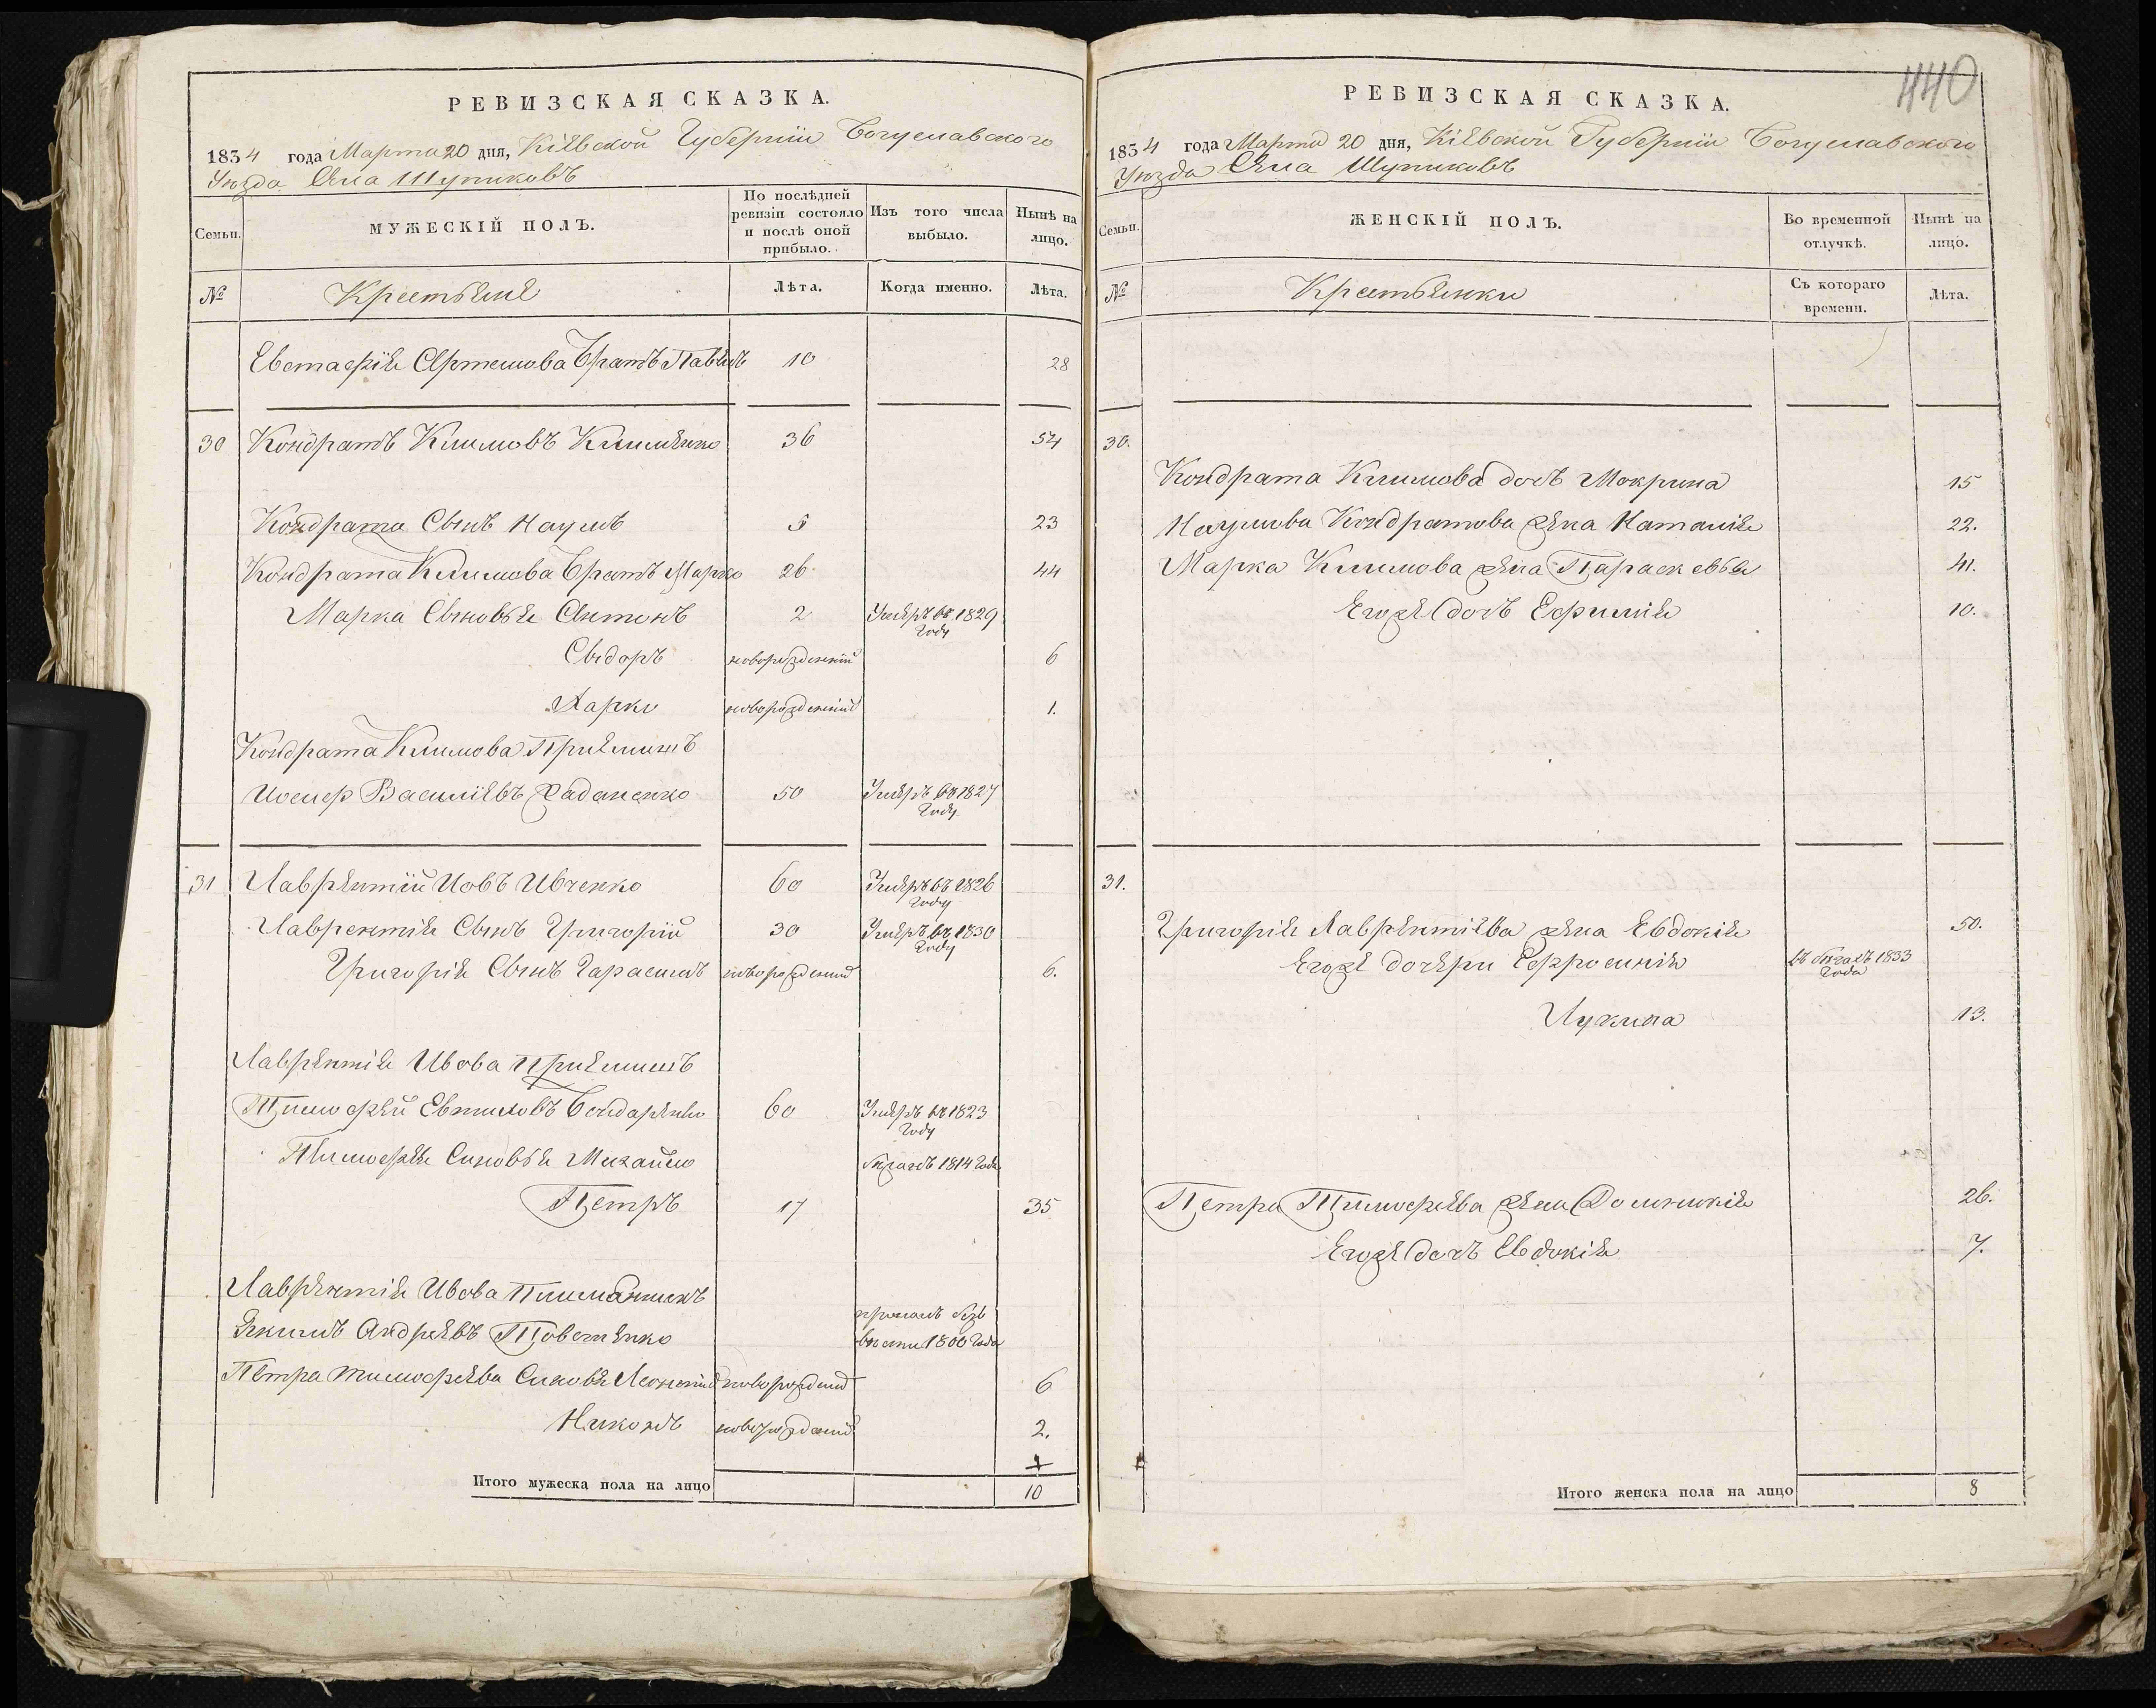 РЕВИЗСКАЯ СКАЗКА.
1834 года Марта 20 дня, Кіевской Губерніи Богуславского
Уѣзда Села Шупиковъ
Семьи.
МУЖЕСКІЙ ПОЛЪ.
По послѣдней ревизіи состояло и послѣ оной прибыло.
Изъ того числа выбыло.
Нынѣ на лицо.
№
Крестьяне
Лѣта.
Когда именно.
Лѣта.
Евстафія Артемова братъ Павелъ 10 28
30 Кондратъ Климовъ Клименко 36 54
Кондрата Сынъ Наумъ 5 23
Кондрата Климова братъ Марко 26 44
Марка Сыновья Антонъ 2 Умеръ въ 1829
Году
Сыдоръ новорожденный 6
Харко новорожденный 1.
Кондрата Климова Приемышъ
Иосиф Василіевъ 50 Умеръ въ 1827
Году
31 Лаврентий Иовъ Ивченко 60 Умеръ въ 1826
Году
Лаврентія Сынъ Григорій 30 Умеръ въ 1830
Году
Григорія Сынъ Гарасимъ новорожденный 6.
Лаврентія Ивова Приемышъ
Тимофей Евтиховъ Бондаренко 60 Умеръ въ 1823
Году
Тимофея Сыновья Михайло бѣжалъ 1814 Года
Петръ 17 35
Лаврентія Ивова Племянникъ
Якимъ Андреевъ Товстенко пропалъ безъ
вѣсти 1800 Года
Петра Тимофеева Сыновя Леонтий новорожденный 6
Никонъ новорожденный 2.
Итого мужеска пола на лицо 10
440
РЕВИЗСКАЯ СКАЗКА.
1834 года Марта 20 дня, Кіевской Губерніи Богуславского
Уѣзда Села Шупиковъ
Семьи.
ЖЕНСКІЙ ПОЛЪ.
Во временной отлучкѣ.
Нынѣ на лицо.
№
Крестьянки
Съ котораго времени.
Лѣта.
30.
Кондрата Климова дочь Мокрина 15
Наумова Кондратова жена Наталія 22.
Марка Климова жена Параскевья 41.
Егоже дочь Ефимія 10.
31.
Григорія Лаврентіева жена Евдокія 50.
Егоже дочери Ефросинія въ бѣгахъ 1833
Года
Лукина 13.
Петра Тимофеева жена Доминикія 26.
Егоже дочь Евдокія 7.
Итого женска пола на лицо 8